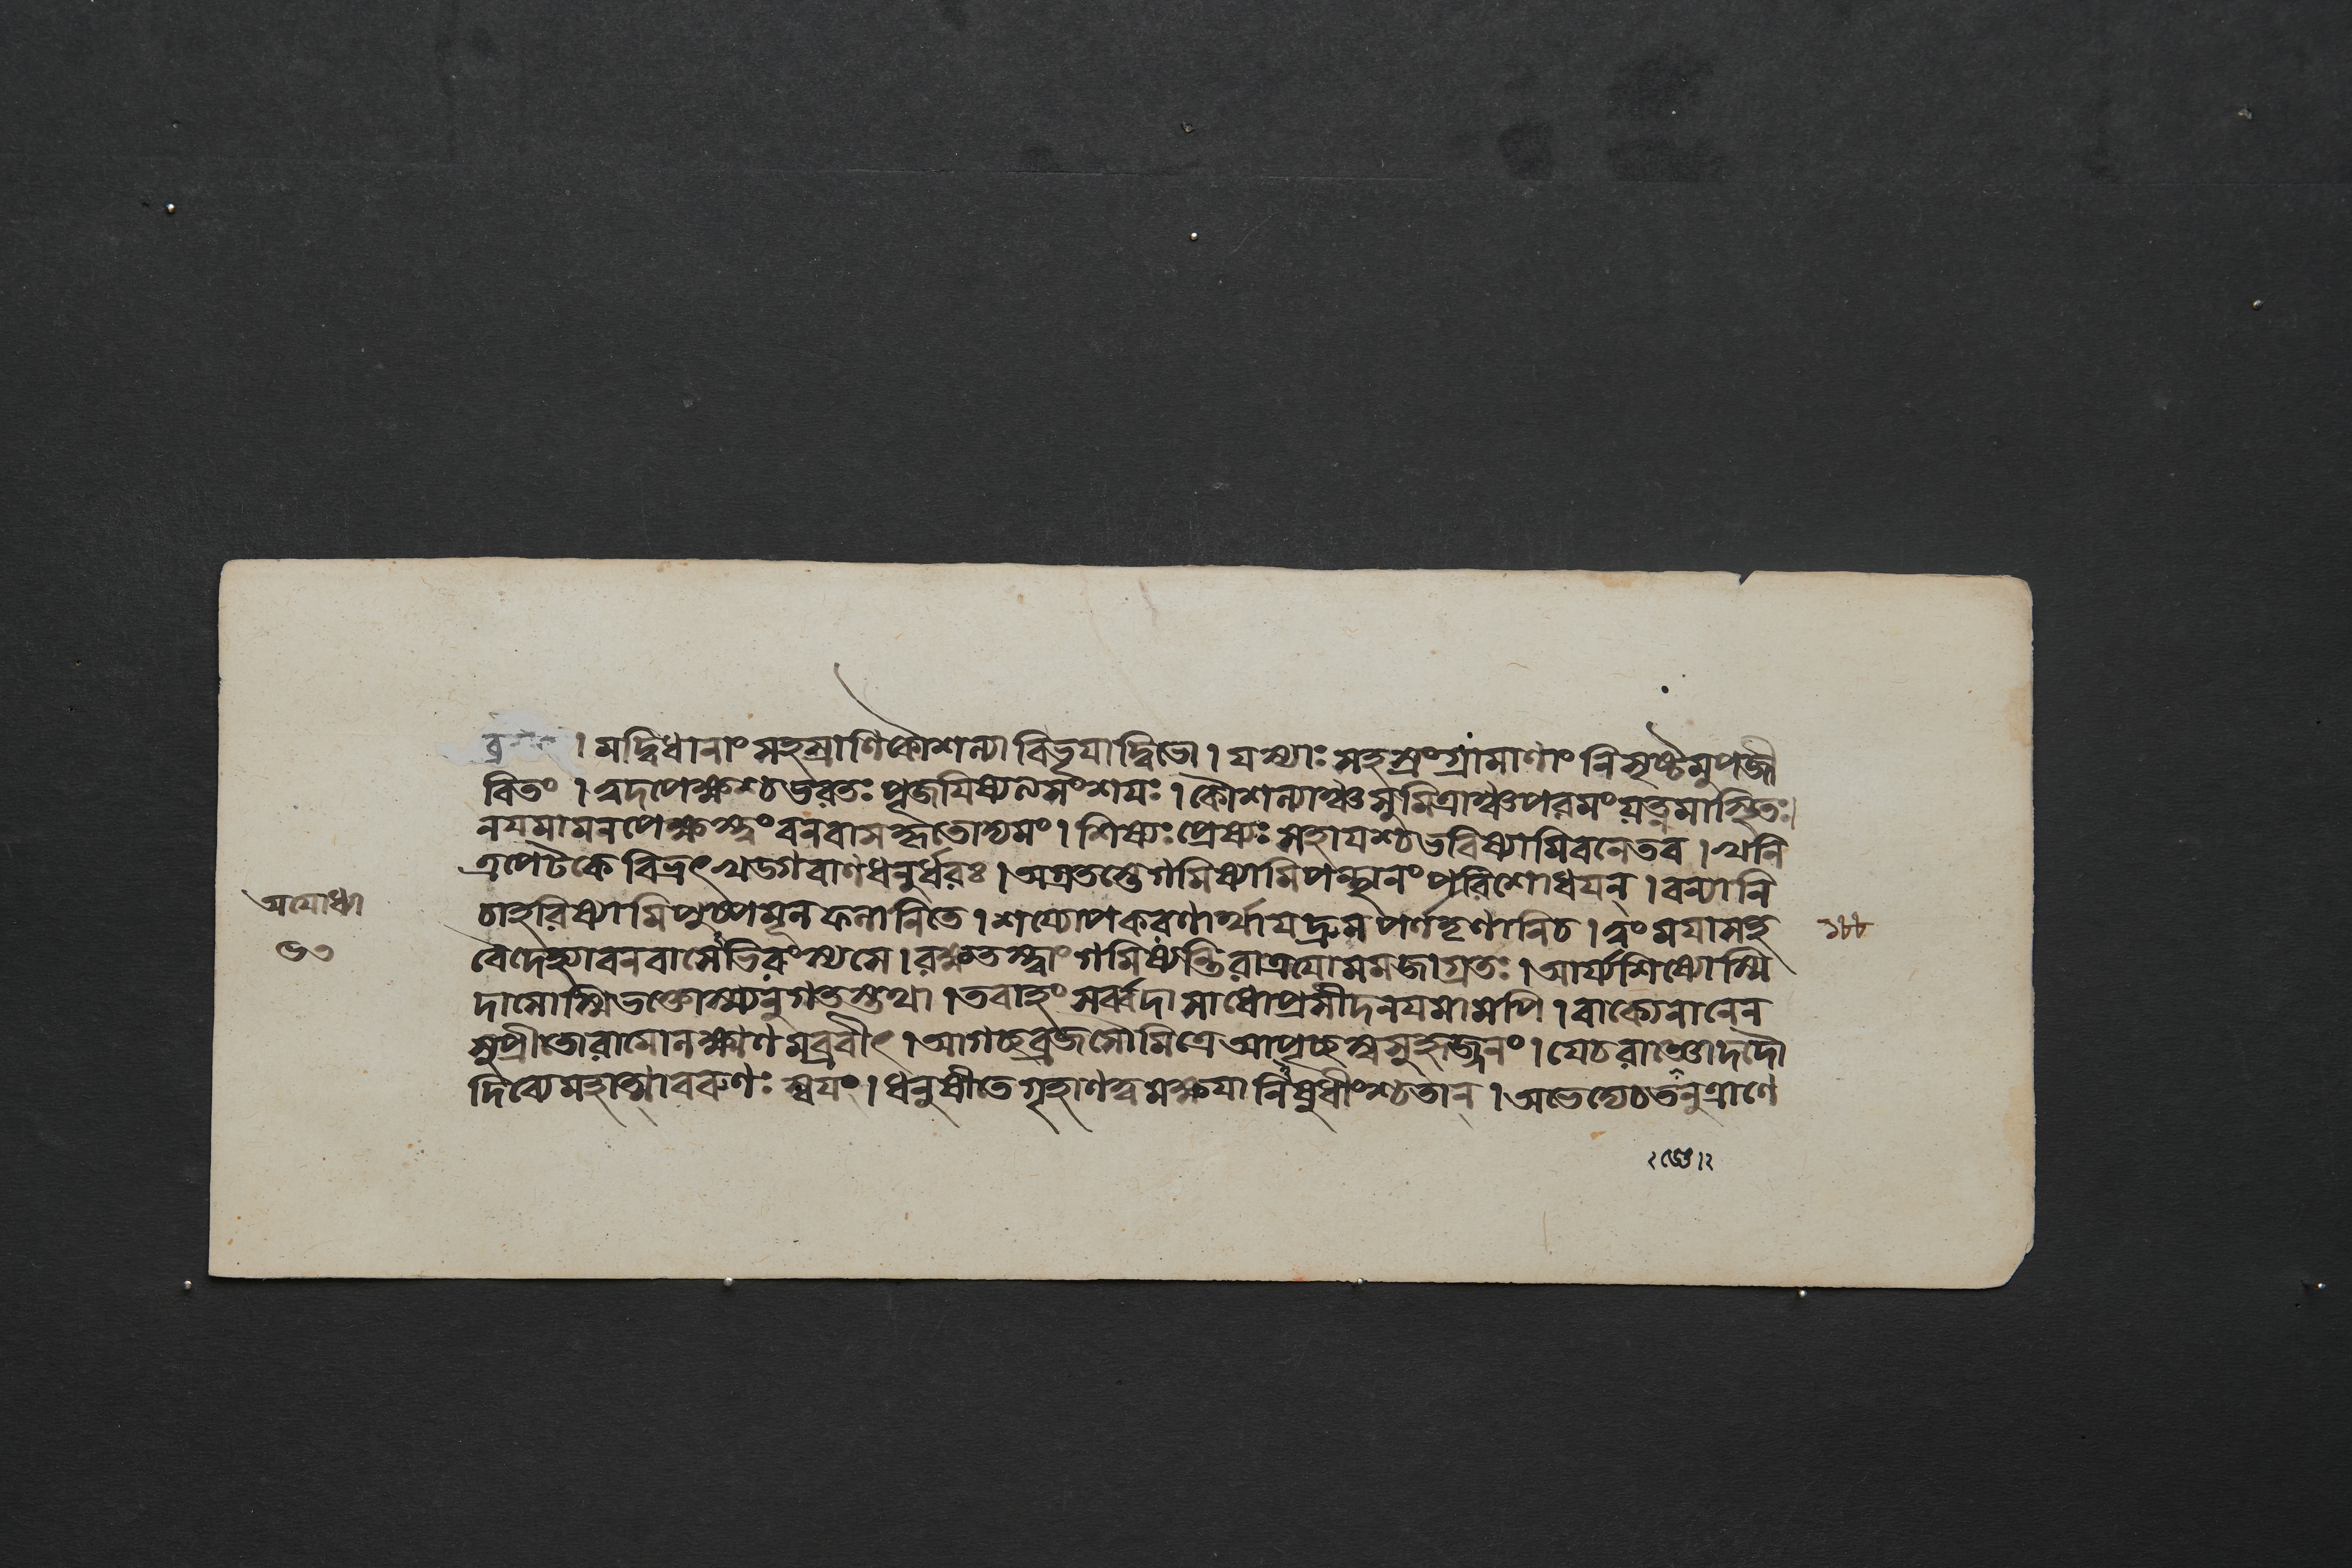 । মদ্বিধানাং সহস্রাণি কৌশল্যা বিভৃযাদ্বিভো । যস্যাঃ সহস্রং গ্রামাণাং নিসৃষ্টমুপজী
বিতং । ত্বদপেক্ষশ্চ ভরতঃ পূজযিষ্যত্যসংশযঃ । কৌশল্যাঞ্চ সুমিত্রাঞ্চ পরমং যত্নমাস্থিতঃ।
নয মামনপেক্ষস্ত্বং বনবাসকৃতোদ্যমং । শিষ্যঃ প্রেষ্যঃ সহাযশ্চ ভবিষ্যামি বনে তব । খনি
ত্রপেটকে বিভ্রৎ খড্গবাণধনুর্ধরঃ । অগ্রতস্তে গমিষ্যামি পন্থানং পরিশোধযন্ । বন্যানি
অযোধ্যা
চাহরিষ্যামি পুষ্পমূলফলানি তে । শয্যোপকরণার্থায দ্রুমপর্ণতৃণানি চ । ত্বং মযা সহ
বৈদেহ্যা বনবাসেভিরংস্যসে । রক্ষতস্ত্বাং গমিষ্যন্তি রাত্রযো মম জাগ্রতঃ । আর্য্য শিষ্যোস্মি
দাসোস্মি ভক্তোস্ম্যনুগতস্তথা । তবাহং সর্ব্বদা সাধো প্রসীদ নয মামপি । বাক্যেনানেন
সুপ্রীতো রামো লক্ষ্মণমব্রবীৎ । আগচ্ছ ব্রজ সৌমিত্রে আপৃচ্ছস্ব সুহৃজ্জনং । যে চ রাজ্ঞো দদৌ
দিব্যে মহাত্মা বরুণঃ স্বযং । ধনুষী তে গৃহাণ ত্বমক্ষযানিষুধীংশ্চ তান্ । অভেদ্যে চ তনুত্রাণে